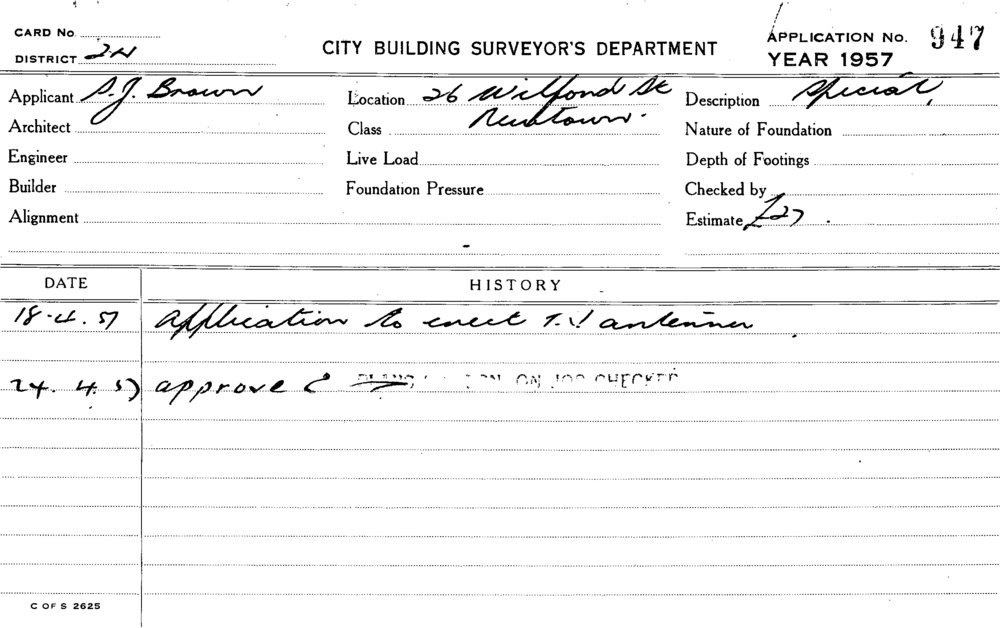 CARD No.
DISTRICT 2N
CITY BUILDING SURVEYOR'S DEPARTMENT
APPLICATION No. 947
YEAR 1957
Applicant S. J. Brown
Location 26 Wilford St
Newtown.
Description Special
Architect
Class
Nature of Foundation
Engineer
Live Load
Depth of Footings
Builder
Foundation Pressure
Checked by
Alignment
Estimate £27.
DATE
HISTORY
18.4.57 Application to erect T.V antenner
24.4.57 approved PLANS ON JOB CHECKED
C OF S 2625